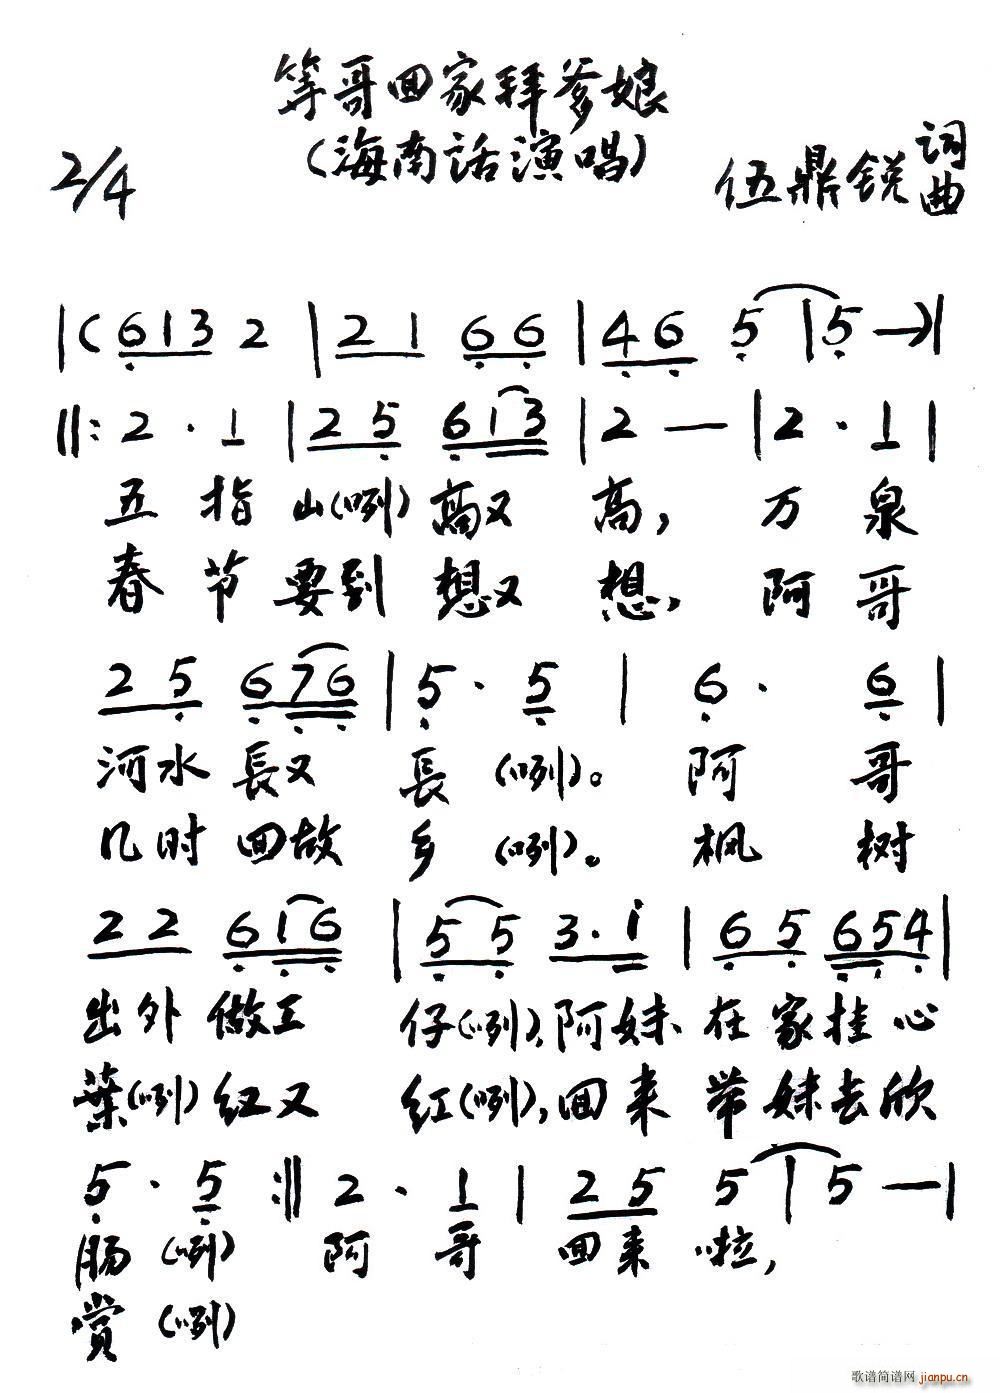 等哥回家拜爹娘
(海南话演唱)
2/4
伍鼎锐 词曲
|( 6 1 3 2 | 2 1 6 6 | 4 6 5 | 5 — )|
‖: 2 · 1 | 2 5 6 1 3 | 2 — | 2 · 1 |
五指山(咧)高又高,万泉
春节要到想又想,阿哥
2 5 6 7 6 | 5 · 5 | 6 · 6 |
河水長又長(咧)。阿哥
几时回故乡(咧)。枫树
2 2 6 1 6 | 5 5 3 · i | 6 5 6 5 4 |
出外做工仔(咧),阿妹在家挂心
葉(咧)红又红(咧),回来带妹去欣
5 · 5 :‖ 2 · 1 | 2 5 5 | 5 — |
肠(咧)阿哥回来啦,
赏(咧)
歌谱简谱网 jianpu.cn